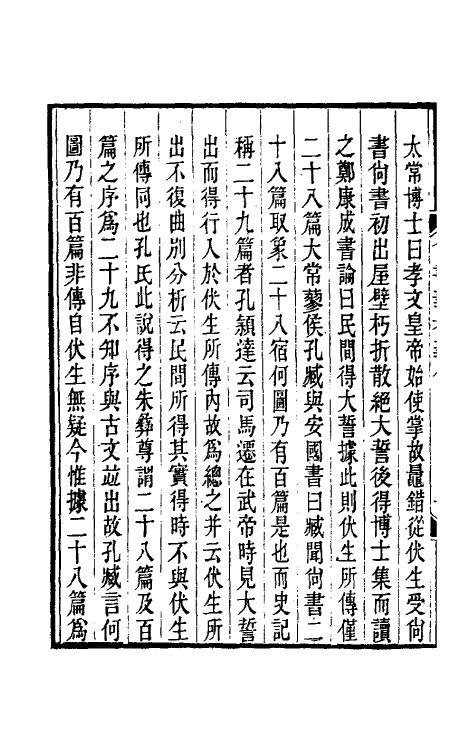 太常博士曰孝文皇帝始使掌故鼂錯從伏生受尙
書尙書初出屋壁朽折散絕大誓後得博士集而讀
之鄭康成書論曰民間得大誓據此則伏生所傳僅
二十八篇大常蓼侯孔臧與安國書曰臧聞尙書二
十八篇取象二十八宿何圖乃有百篇是也而史記
稱二十九篇者孔頴達云司馬遷在武帝時見大誓
出而得行入於伏生所傳內故爲總之并云伏生所
出不復曲別分析云民間所得其實得時不與伏生
所傳同也孔氏此說得之朱彝尊謂二十八篇及百
篇之序爲二十九不知序與古文竝出故孔臧言何
圖乃有百篇非傳自伏生無疑今惟據二十八篇爲